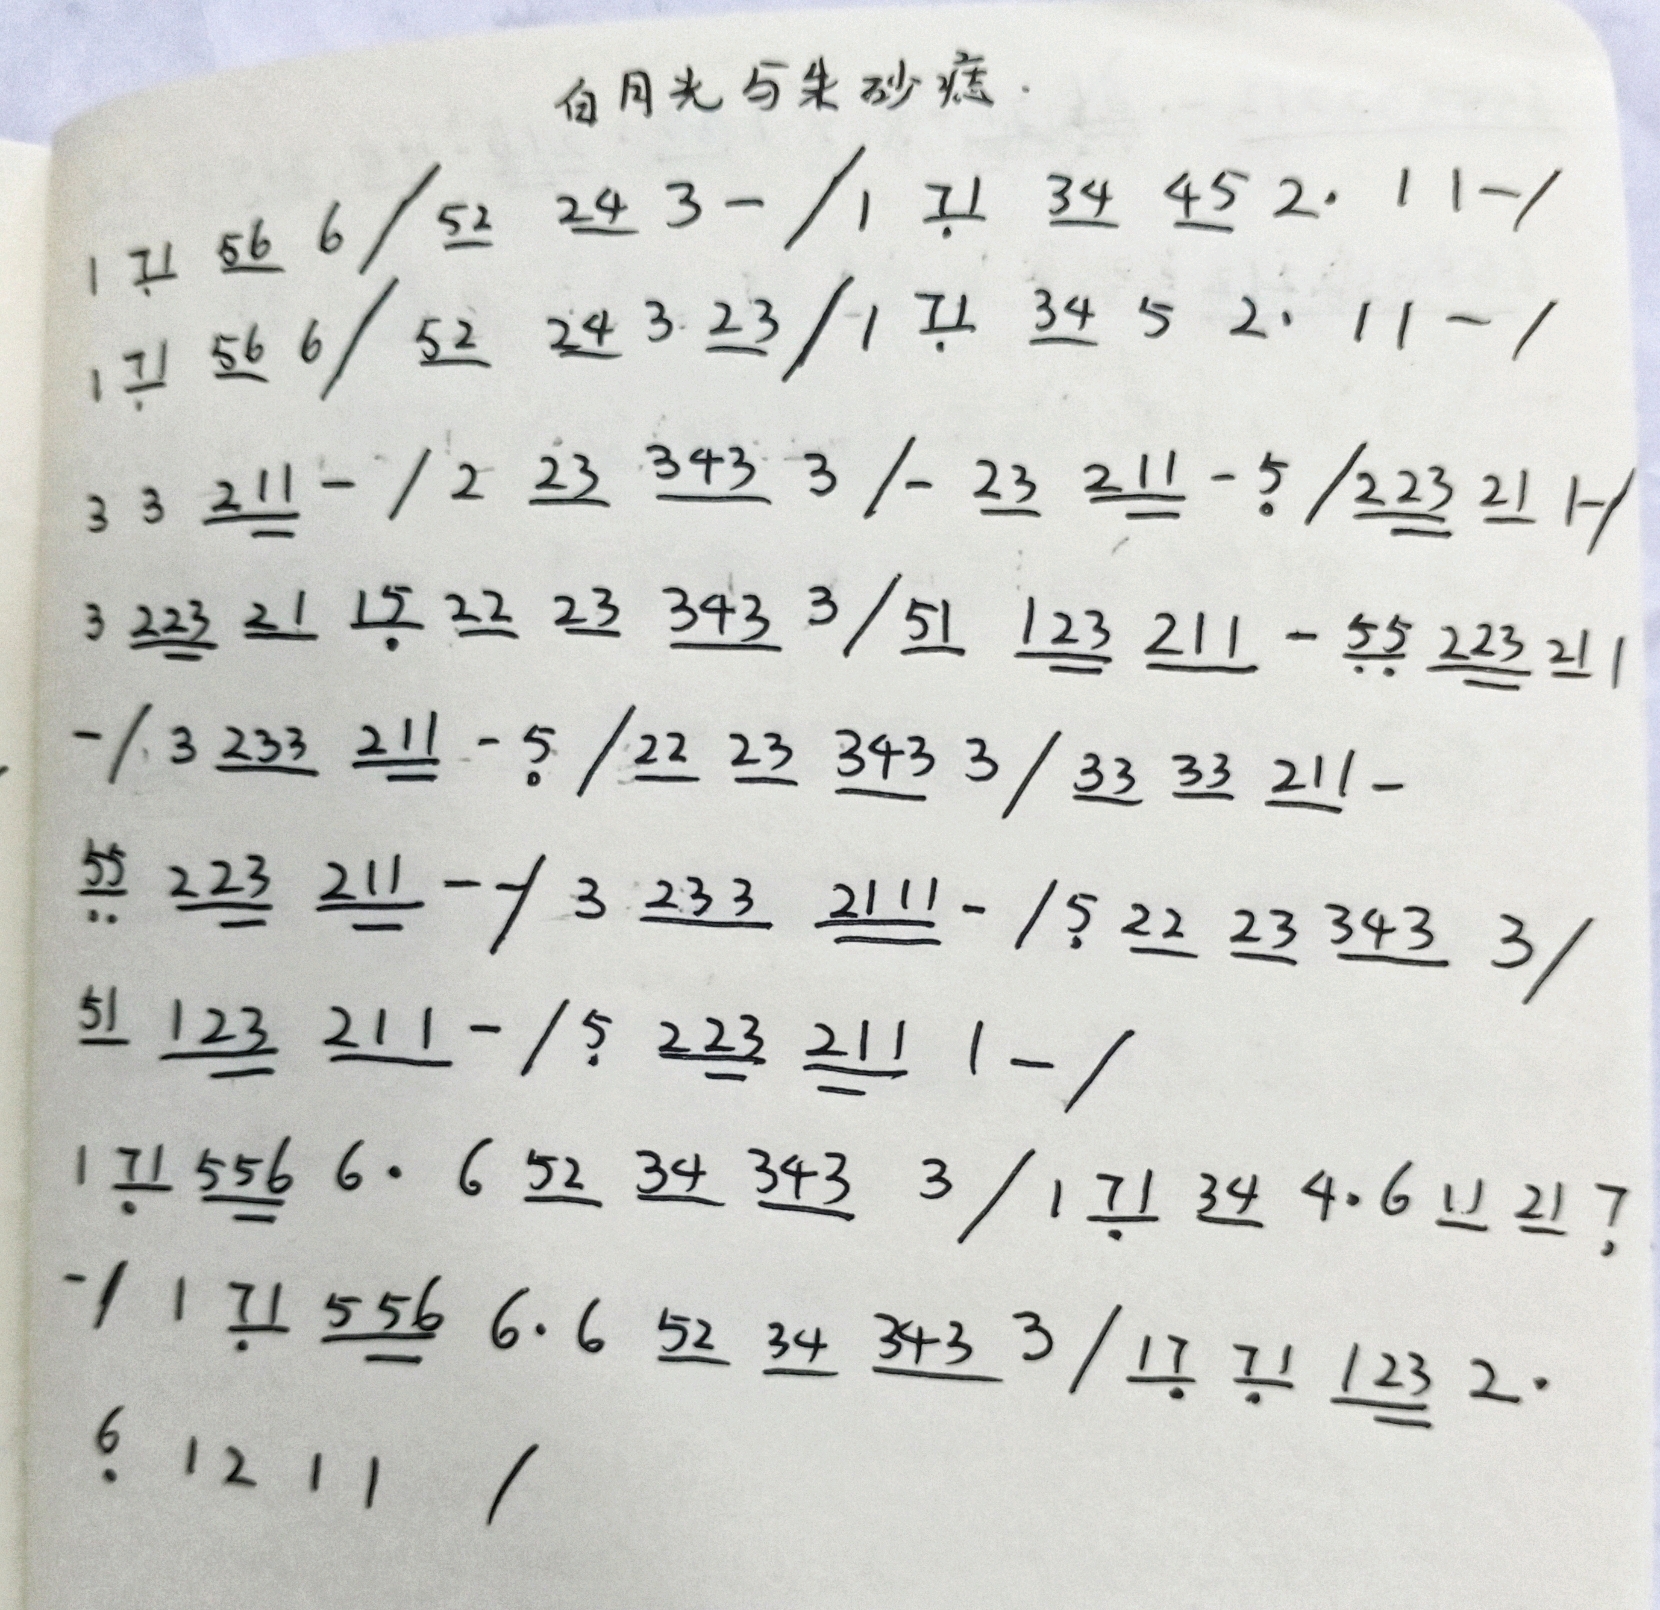 白月光与朱砂痣.
1 71 56 6 / 52 24 3 - / 1 71 34 45 2. 1 1 - /
1 71 56 6 / 52 24 3 23 / 1 71 34 5 2. 1 1 - /
3 3 211 - / 2 23 343 3 / - 23 211 - 5 / 223 21 1 - /
3 223 21 15 22 23 343 3 / 51 123 211 - 55 223 21 1
- / 3 233 211 - 5 / 22 23 343 3 / 33 33 211 -
55 223 211 - - / 3 233 2111 - / 5 22 23 343 3 /
51 123 211 - / 5 223 211 1 - /
1 71 556 6. 6 52 34 343 3 / 1 71 34 4. 6 11 21 7
- / 1 71 556 6. 6 52 34 343 3 / 17 71 123 2.
6 1 2 1 1 /